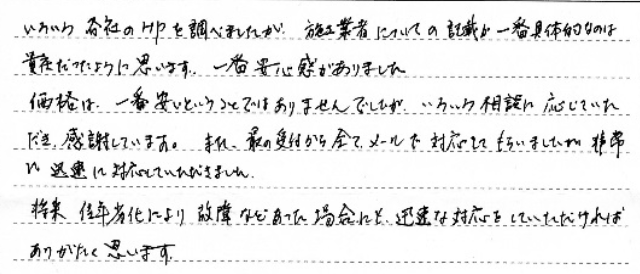 いろいろ各社のHPを調べましたが、施工業者についての記載が一番具体的なのは
貴店だったように思います。一番安心感がありました
価格は、一番安いということではありませんでしたが、いろいろ相談に応じていた
だき、感謝しています。また、最初の受付から全て、メールで対応をしてもらいましたが非常
に迅速に対応していただきました。
将来経年劣化により故障などあった場合にも、迅速な対応をしていただければ
ありがたく思います。